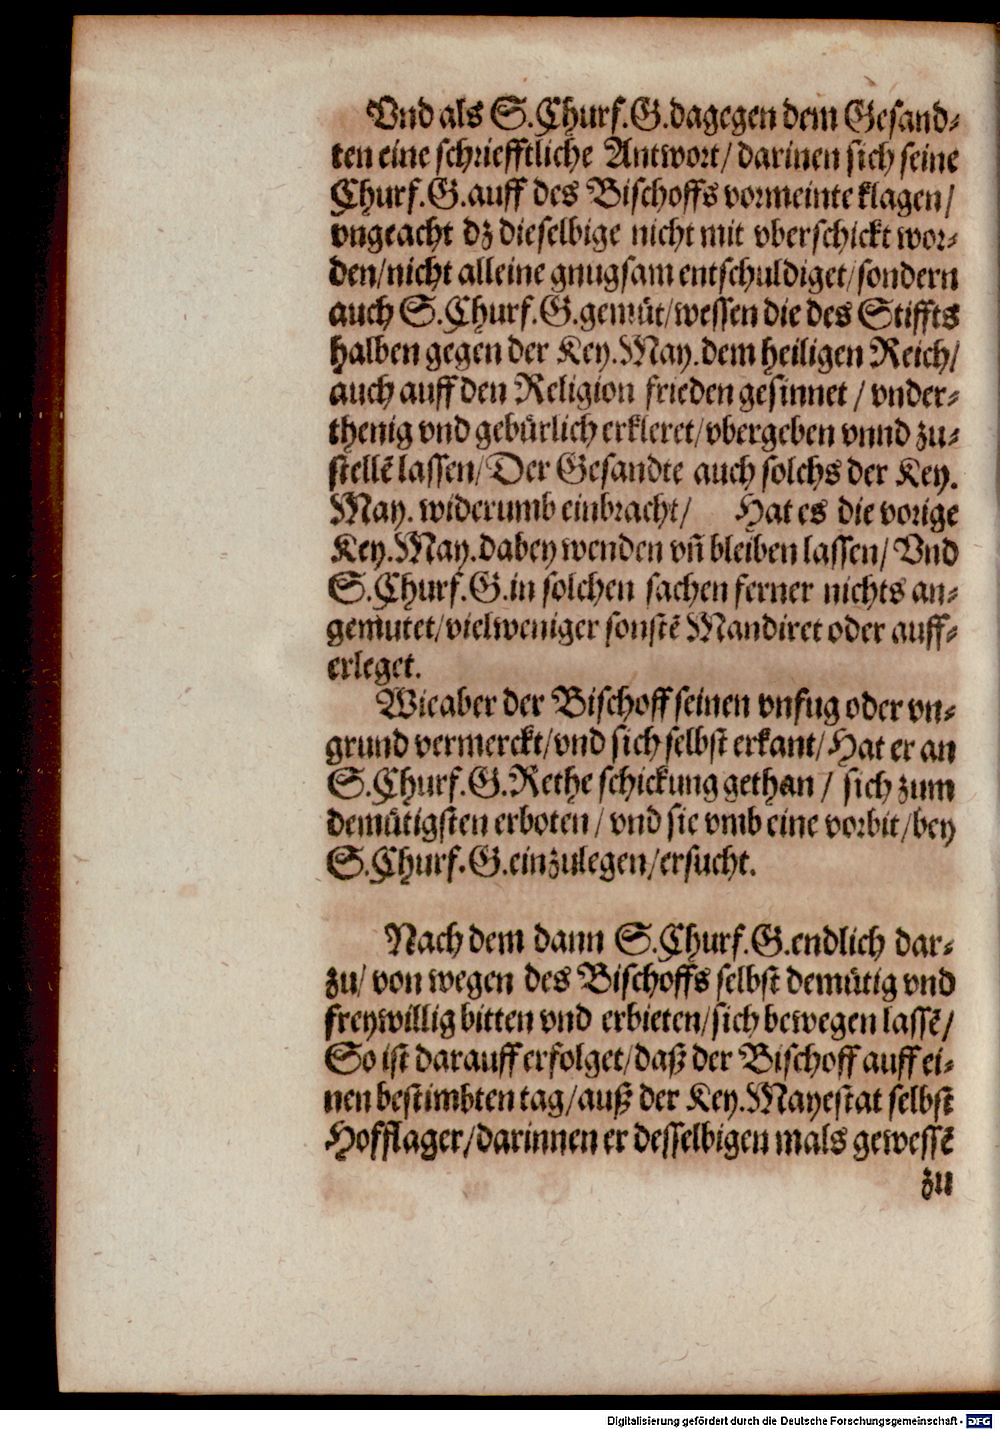 Vnd als S. Churf. G. dagegen dem Gesand⸗
ten eine schriefftliche Antwort/ darinen sich seine
Churf. G. auff des Bischoffs vormeinte klagen/
vngeacht dz dieselbige nicht mit vberschickt wor⸗
den/ nicht alleine gnugsam entschuldiget/ sondern
auch S. Churf. G. gemüt/ wessen die des Stiffts
halben gegen der Key. May. dem heiligen Reich/
auch auff den Religion frieden gesinnet / vnder⸗
thenig vnd gebürlich erkleret/ vbergeben vnnd zu⸗
stellē lassen/ Der Gesandte auch solchs der Key.
May. widerumb einbracht/ Hat es die vorige
Key. May. dabey wenden vñ bleiben lassen/ Vnd
S. Churf. G. in solchen sachen ferner nichts an⸗
gemutet/ vielweniger sonstē Mandiret oder auff⸗
erleget.
Wie aber der Bischoff seinen vnfug oder vn⸗
grund vermerckt/ vnd sich selbst erkant/ Hat er an
S. Churf. G. Rethe schickung gethan / sich zum
demütigsten erboten / vnd sie vmb eine vorbit/ bey
S. Churf. G. einzulegen/ ersucht.
Nach dem dann S. Churf. G. endlich dar⸗
zu/ von wegen des Bischoffs selbst demütig vnd
freywillig bitten vnd erbieten/ sich bewegen lassē/
So ist darauff erfolget/ daß der Bischoff auff ei⸗
nen bestimbten tag/ auß der Key. Mayestat selbst
Hofflager/ darinnen er desselbigen mals gewessē
zu
Digitalisierung gefördert durch die Deutsche Forschungsgemeinschaft - DFG